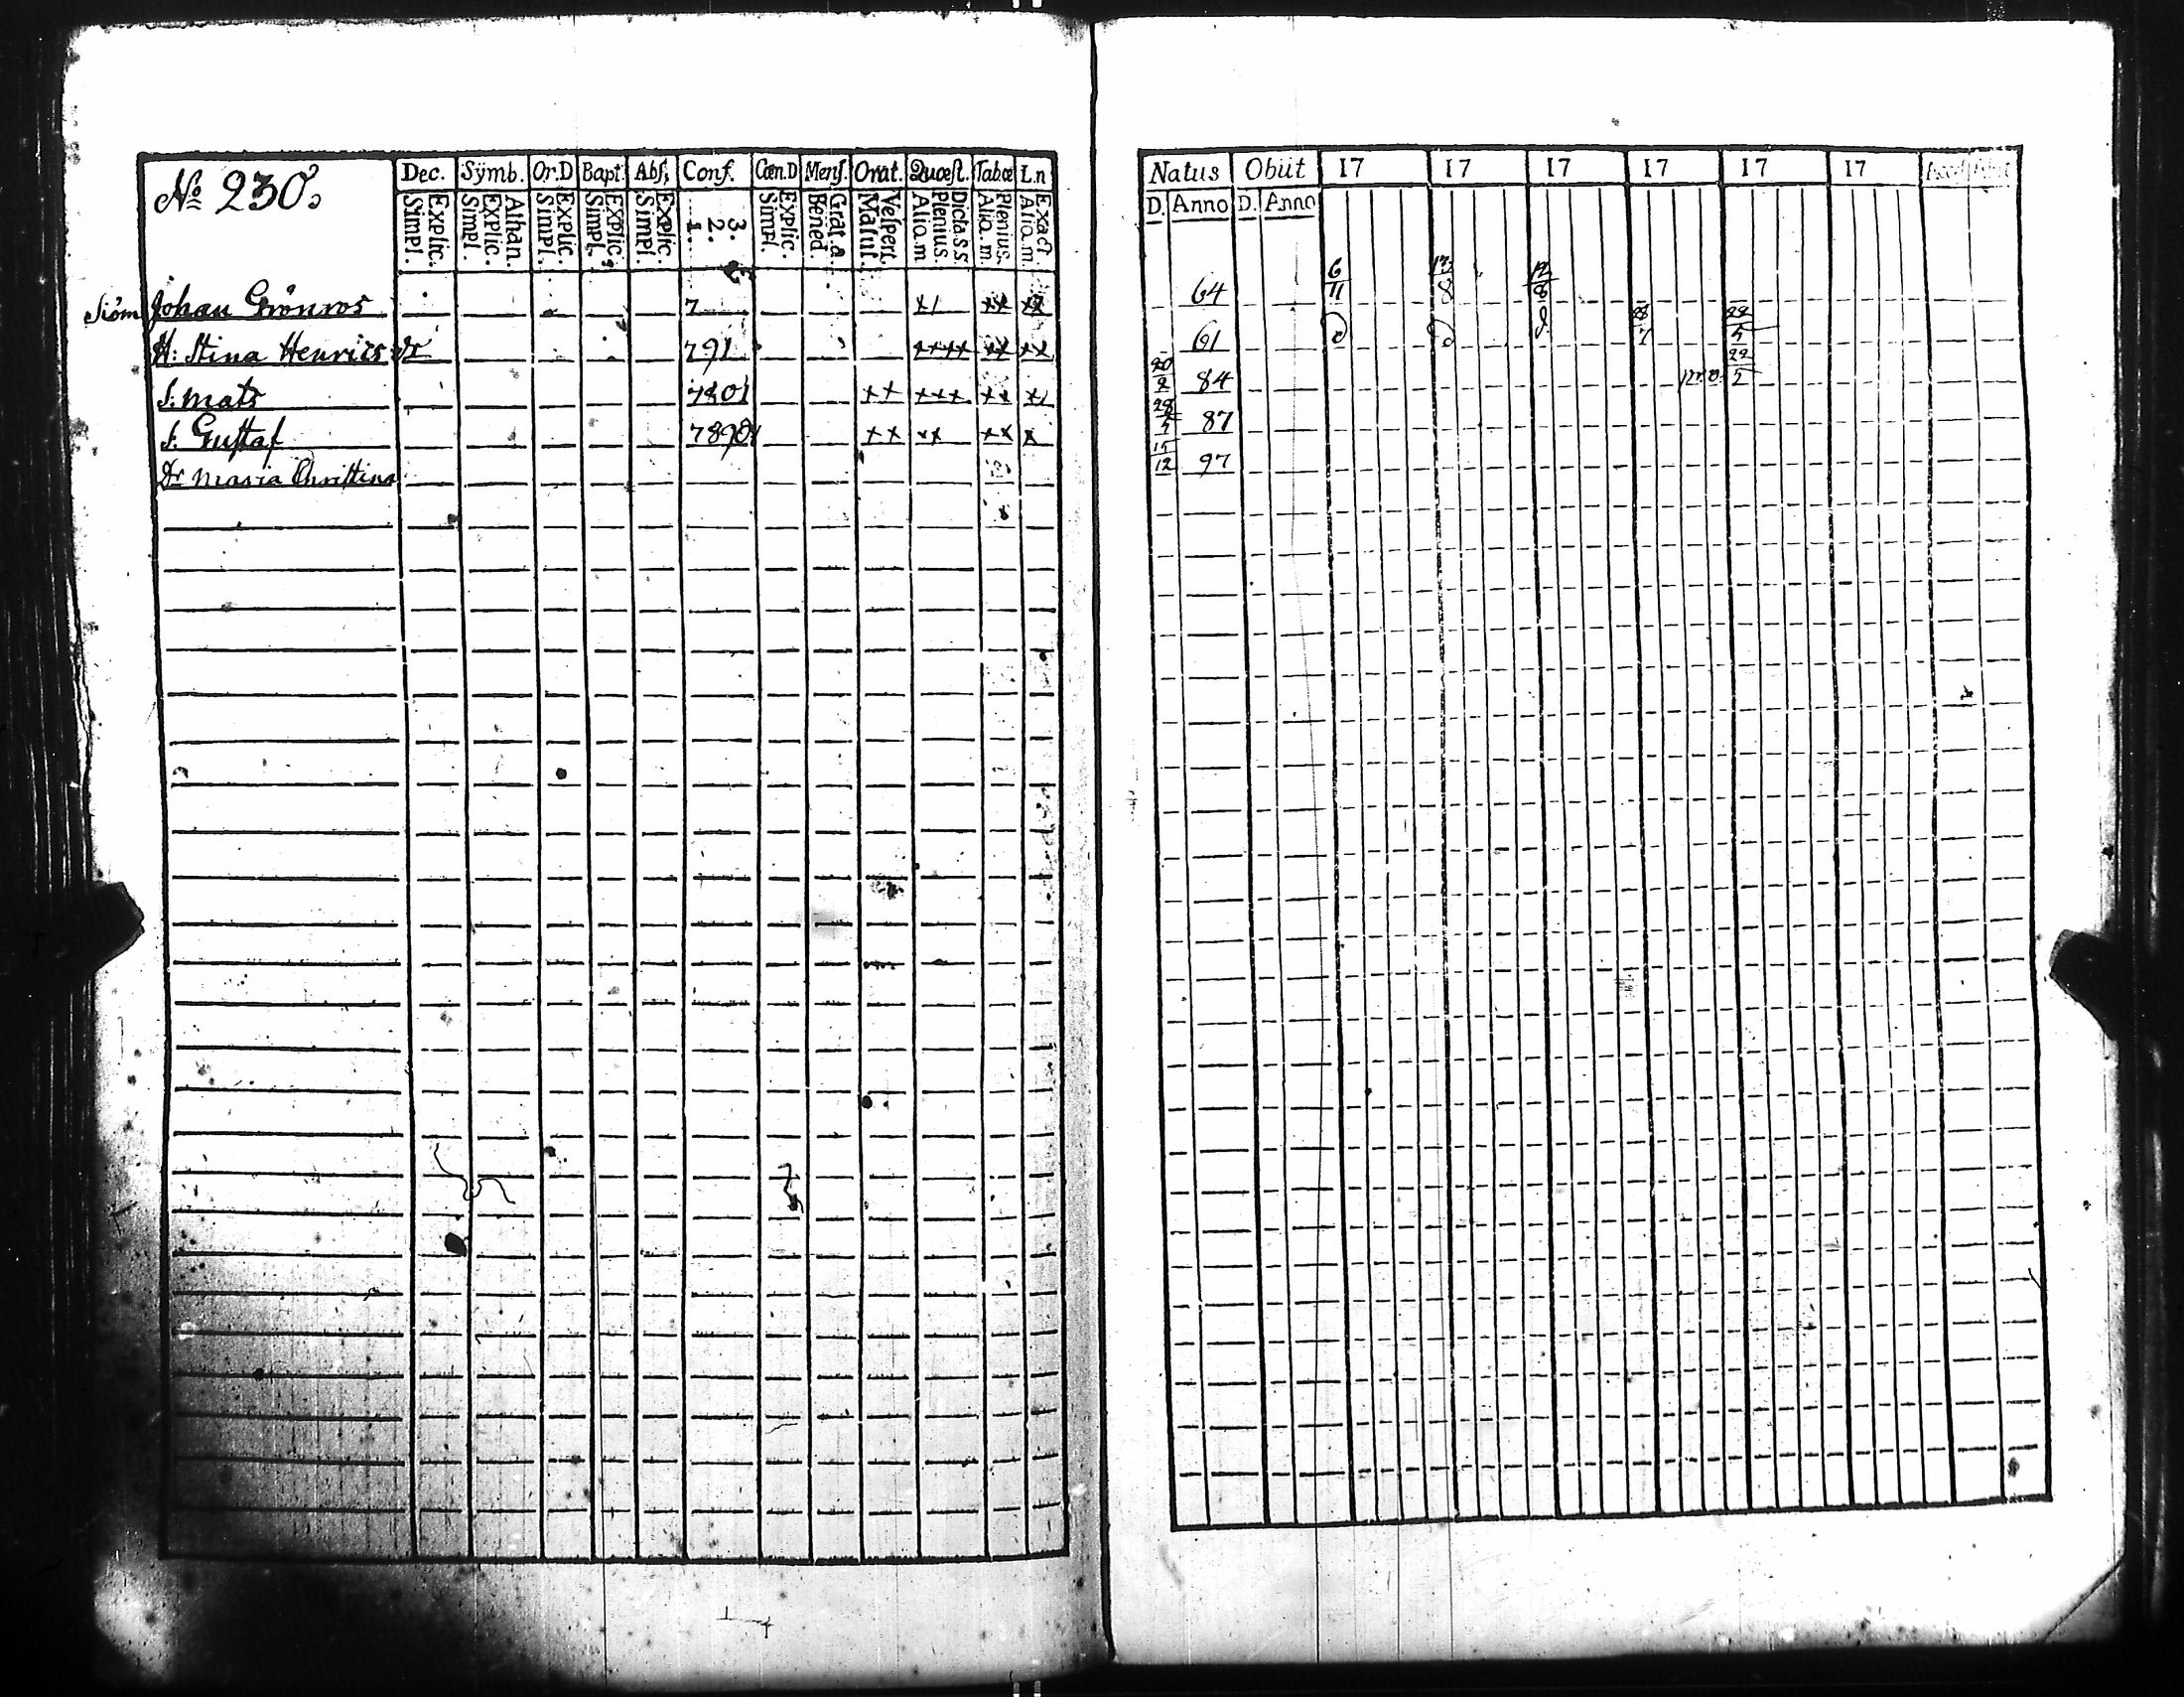 No 230.
Dec. Sÿmb. Or.D Bapt. Abs. Conf. Cœn.D Mens. Orat. Quæst. Tabœ L.n
Explic. Simpl. Athan. Explic. Simpl. Explic. Simpl. Explic. Simpl. Explic. Simpl. 3. 2. 1. Explic. Simpl. Grat. a. Bened. Vespert. Matut. Dicta.s.s. Plenius. Aliq.m Plenius. Aliq.m Exact Aliq.m.
Siöm Johan Grönros 7 x1 xx xx
H: Stina Henrics dr 791 xxxx xx xx
S: Mats 7801 xx xxx xx x1
S. Gustaf 7890 xx xx xx x
Dr Maria Christina
Natus Obiit 17 17 17 17 17 17
D. Anno D. Anno
64 6/11 13/8 12/8
61 28/7 22/5
20/2 84 22/5
28/7 87
15/12 97